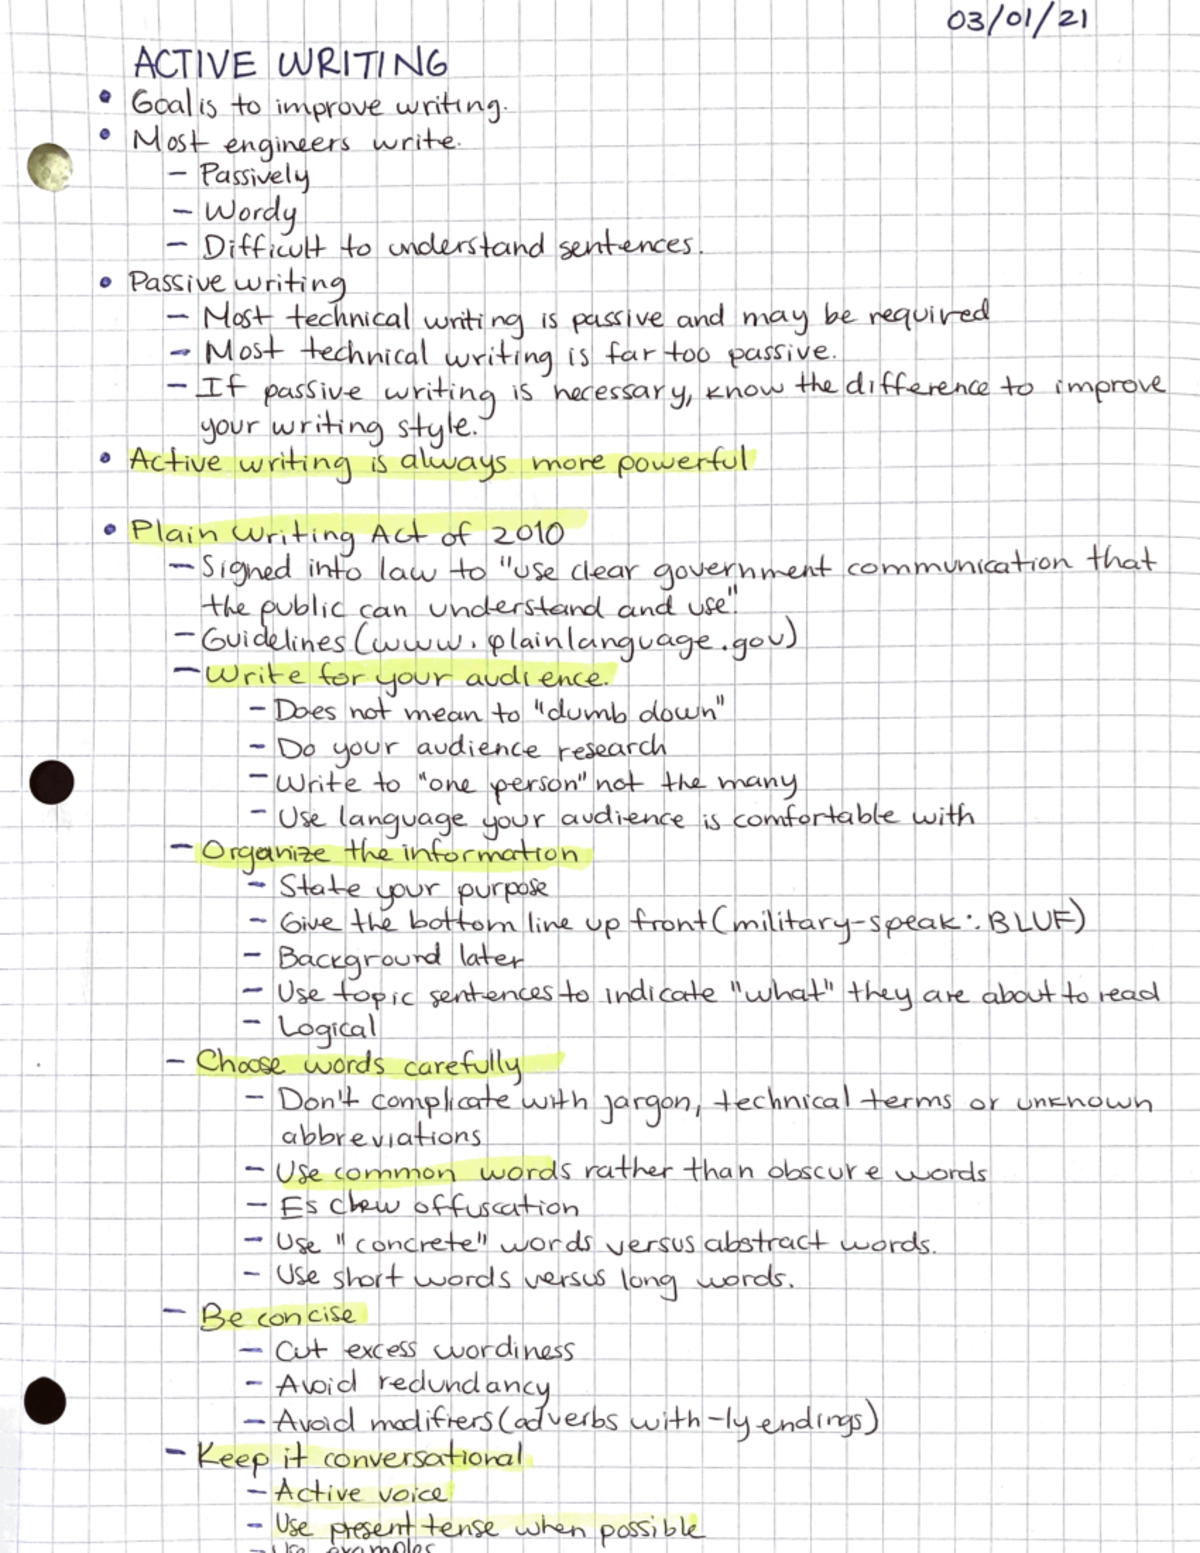 03/01/21
ACTIVE WRITING
• Goal is to improve writing.
• Most engineers write.
– Passively
– Wordy
– Difficult to understand sentences.
• Passive writing
– Most technical writing is passive and may be required
– Most technical writing is far too passive.
– If passive writing is necessary, know the difference to improve
your writing style.
• Active writing is always more powerful
• Plain Writing Act of 2010
– Signed into law to "use clear government communication that
the public can understand and use".
– Guidelines (www.plainlanguage.gov)
– Write for your audience.
– Does not mean to "dumb down"
– Do your audience research
– Write to "one person" not the many
– Use language your audience is comfortable with
– Organize the information
– State your purpose
– Give the bottom line up front (military-speak: BLUF)
– Background later
– Use topic sentences to indicate "what" they are about to read
– Logical
– Choose words carefully
– Don't complicate with jargon, technical terms or unknown
abbreviations
– Use common words rather than obscure words
– Es chew offuscation
– Use "concrete" words versus abstract words.
– Use short words versus long words.
– Be concise
– Cut excess wordiness
– Avoid redundancy
– Avoid modifiers (adverbs with -ly endings)
– Keep it conversational
– Active voice
– Use present tense when possible
– Use examples